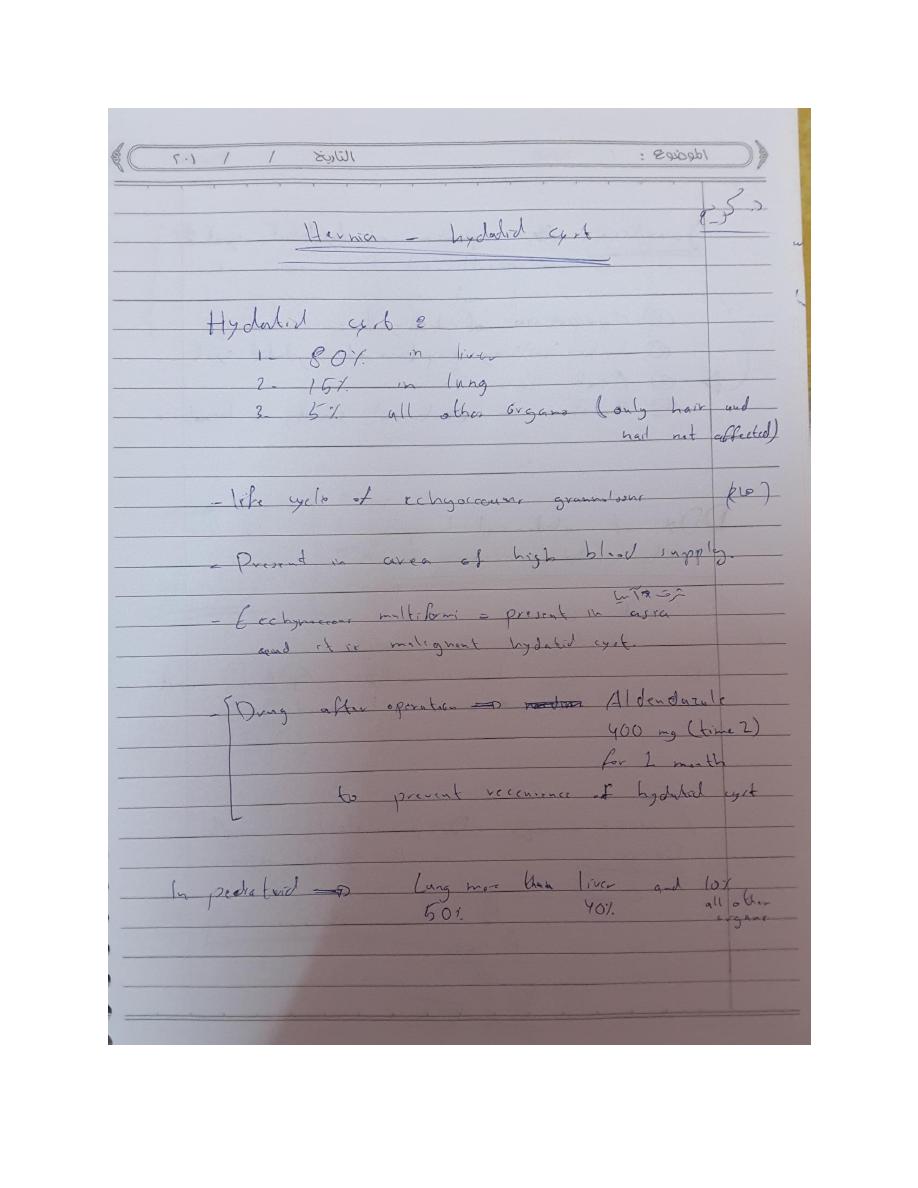 الموضوع : التاريخ / / ٢٠١
د. كريم
Hernia - hydatid cyst
Hydatid cyst :
1- 80% in liver
2- 15% in lung
3- 5% all other organs (only hair and
nail not affected)
- life cycle of
- Present in area of high blood supply.
شرق آسيا
- multiformi = present in asia
and it is malignant hydatid cyst.
- Drug after operation ⇒ Aldendazule
400 mg (time 2)
for 2 month
to prevent of hydatid cyst
In ⇒ Lung more than liver and 10%
50% 40% all other
organs